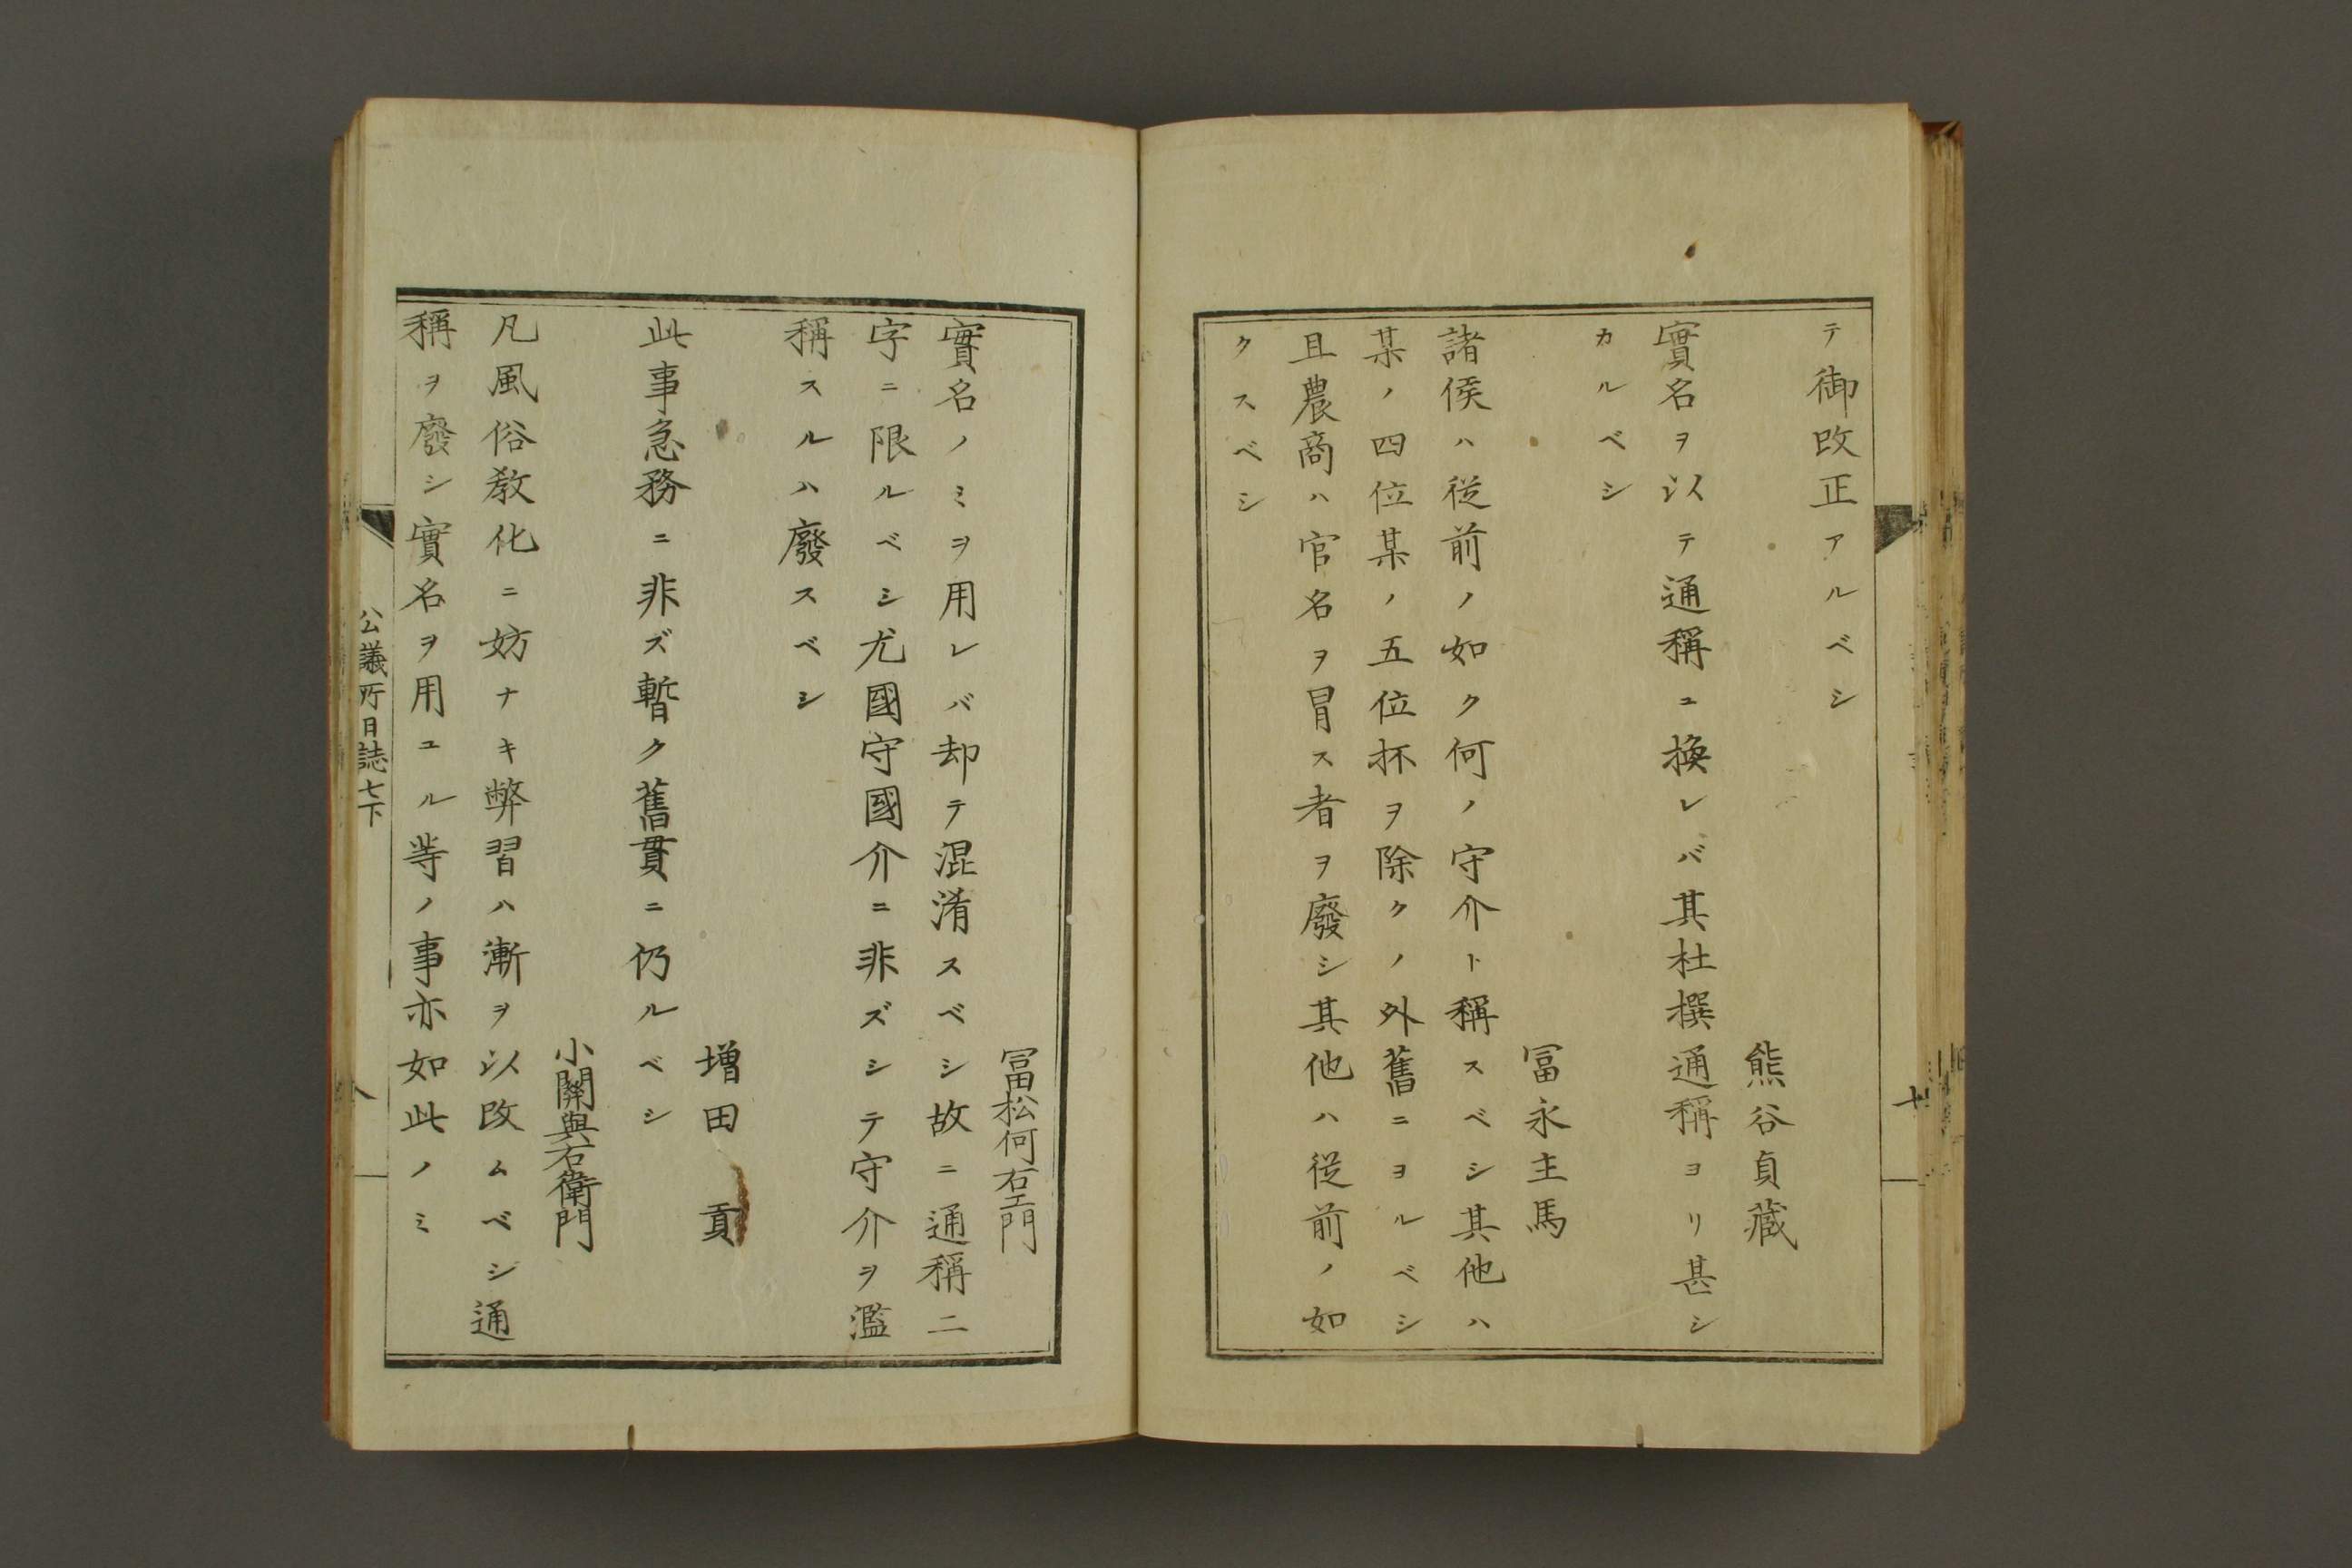 テ御改正アルベシ
熊谷貞藏
實名ヲ以テ通稱ニ換レバ其杜撰通稱ヨリ甚シ
カルベシ
冨永主馬
諸侯ハ從前ノ如ク何ノ守介ト稱スベシ其他ハ
某ノ四位某ノ五位抔ヲ除クノ外舊ニヨルベシ
且農商ハ官名ヲ冒ス者ヲ廢シ其他ハ從前ノ如
クスベシ
冨松何右エ門
實名ノミヲ用レバ却テ混淆スベシ故ニ通稱二
字ニ限ルベシ尤國守國介ニ非ズシテ守介ヲ濫
稱スルハ廢スベシ
増田貢
此事急務ニ非ズ暫ク舊貫ニ仍ルベシ
小關與右衛門
凡風俗教化ニ妨ナキ弊習ハ漸ヲ以改ムベシ通
稱ヲ廢シ實名ヲ用ユル等ノ事亦如此ノミ
公議所日誌七下